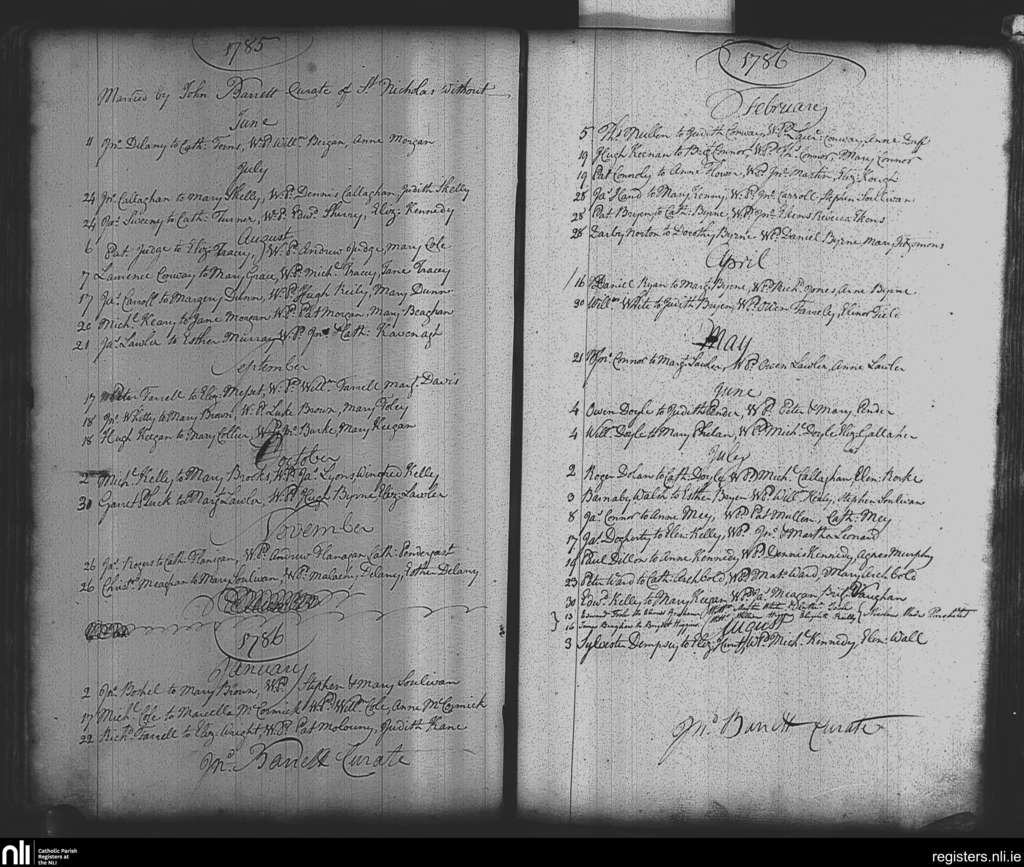 1785
Married by John Barrett Curate of St. Nicholas Without
June
11 Jno. Delany to Cath: Toins, WPs. Willm. Bergan, Anne Morgan
July
24 Jno. Callaghan to Mary Skelly, WPs. Dennis Callaghan Judith Skelly
24 Jas. Sweeny to Cath: Turner, WPs. Eliz: Kennedy
August
6 Pat: Judge to Eliz: Tracey, WPs. Andrew Judge, Mary Cole
7 Laurence Conway to Mary Grace, WPs. Michl. Tracey, Jane Tracey
17 Jas. Carroll to Margery Dunn, WPs. Hugh Reily, Mary Dunn
20 Michl. Keary to Jane Morgan, WPs. Pat Morgan, Mary Beaghan
21 Jas. Lawler to Esther Murray WPs. Jno. & Cath: Kavenagh
September
17 Peter Farrell to Elen: Messet, WPs. Willm. Farrell Margt. Davis
18 Jno. Whitty to Mary Brown, WPs. Luke Brown, Mary Foley
18 Hugh Keegan to Mary Collier, WPs. Jno. Burke, Mary Keegan
October
2 Michl. Kelly to Mary Brooks, WPs. Jas. Lyons Winefred Kelly
30 Garret Pluck to Margt. Lawler, WPs. Hugh Byrne Eliz: Lawler
November
26 Jas. Rogers to Cath: Flanigan, WPs. Andrew Flanagan Cath: Pendergast
26 Christr. Meaghan to Mary Soulivan, WPs. Malachy Delany, Esther Delany
1786
January
2 Jno. Boshel to Mary Brown, WPs. Stephen & Mary Soulivan
17 Michl. Cole to Marcella McCormick WPs. Willm. Cole, Anne McCormick
22 Richd. Farrell to Eliz: Wright, WPs. Pat Molouny, Judith Kane
Jno. Barrett Curate
1786
February
5 Ths. Mullen to Judith Conway, WPs. Laurce. Conway, Anne Duff
19 Hugh Keenan to Brigt. Connor, WPs. Ths. Connor, Mary Connor
19 Pat Connoly to Anne Flower, WPs. Jno. Master, Eliz: Keough
28 Jas. Hand to Mary Kenny, WPs. Jno. Carroll Stephen Soullivan
28 Pat Bryen to Cath: Byrne, WPs. Jno. Ekens Rebecca Ekons
28 Darby Norton to Dorothy Byrne WPs. Daniel Byrne Mary Fitzsimons
April
16 Daniel Ryan to Margt. Byrne, WPs. Richd. Jones Anne Byrne
30 Willm. White to Judith Bryen, WPs. Farrely, Elinor Field
May
21 Jno. Connor to Margt. Lawler, WPs. Owen Lawler, Anne Lawler
June
4 Owen Doyle to Judith Pender, WPs. Peter & Mary Pender
4 Will. Doyle to Mary Phelan, WPs. Michl. Doyle Eliz: Gallaher
July
2 Roger Dolan to Cath: Doyle WPs. Michl. Callaghan, Elen: Rorke
3 Barnaby Walsh to Esther Bryen WPs. Will Kelly, Stephen Soulivan
8 Jas. Connor to Anne Mey, WPs. Pat Mullen, Cath: Mey
17 Jas. Dogherty to Elen: Kelly, WPs. Jno. & Martha Leonard
19 Paul Dillon to Anne Kennedy WPs. Dennis Kennedy, Agnes Murphy
23 Peter Ward to Cath: Archbold, WPs. Mat: Ward, Mary Archbold
30 Edwd. Kelly to Mary Keegan WPs. Jas. Meagan Brigt. Vaughan
13 Edmund
16 James to Bridget Higgins
August
3 Sylvester Dempsey to Eliz: WPs. Michl. Kennedy, Elen: Wall
Jno. Barrett Curate
nli Catholic Parish
Registers at
the NLI
registers.nli.ie